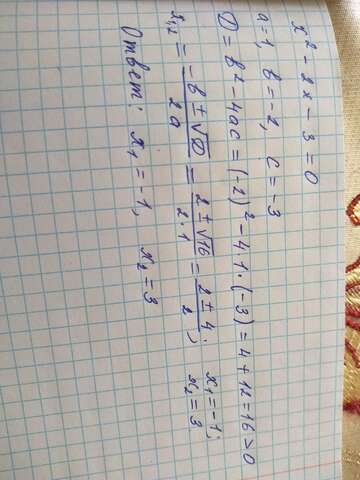 x² - 2x - 3 = 0
a = 1, b = -2, c = -3
D = b² - 4ac = (-2)² - 4·1·(-3) = 4 + 12 = 16 > 0
x₁,₂ = (-b ± √D)/(2a) = (2 ± √16)/(2·1) = (2 ± 4)/2; x₁ = -1; x₂ = 3
Ответ: x₁ = -1, x₂ = 3